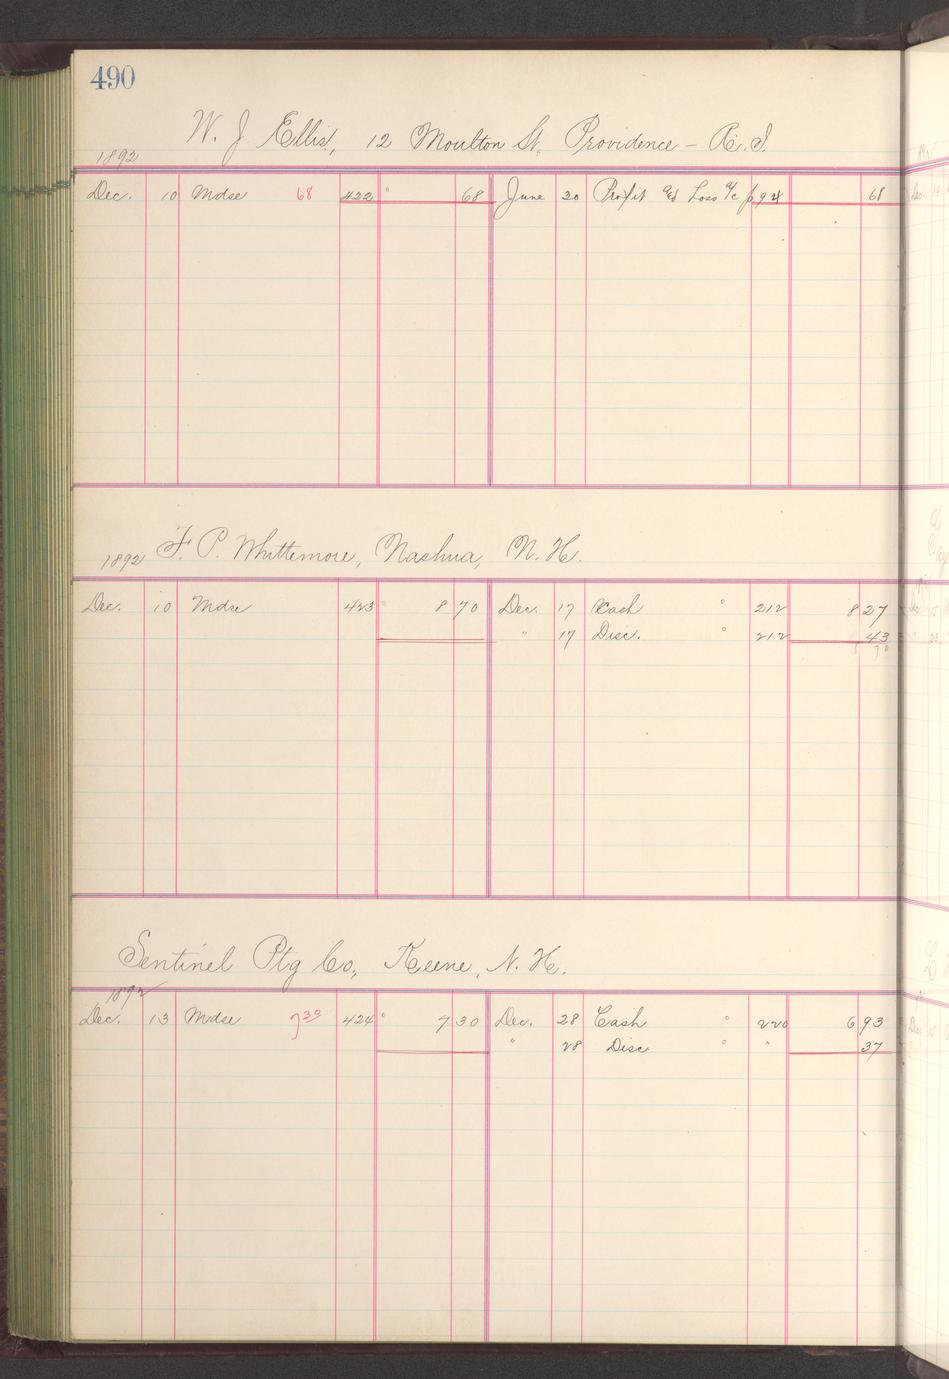 490
W. J. Ellis, 12 Moulton St. Providence - R.I.
1892
Dec. 10 Mdse 68 422 68 June 30 Profit & Loss a/c p94 68
1892 F. P. Whittemore, Nashua, N.H.
Dec. 10 Mdse 423 8 70 Dec. 17 Cash 212 8 27
" 17 Disc. 212 43
Sentinel Ptg Co, Keene, N.H.
1892
Dec. 13 Mdse 7 30 424 7 30 Dec. 28 Cash 220 6 93
" 28 Disc " 37